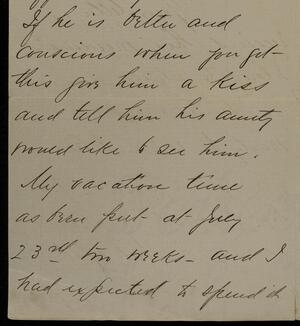 If he is better and
conscious when you get
this give him a kiss
and tell him his aunty
would like to see him.
My vacation time
as been put at July
23rd two weeks - and I
had expected to spend it